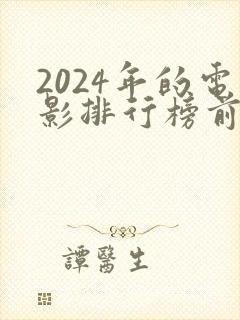 2024年的電
影排行榜前
譚醫生